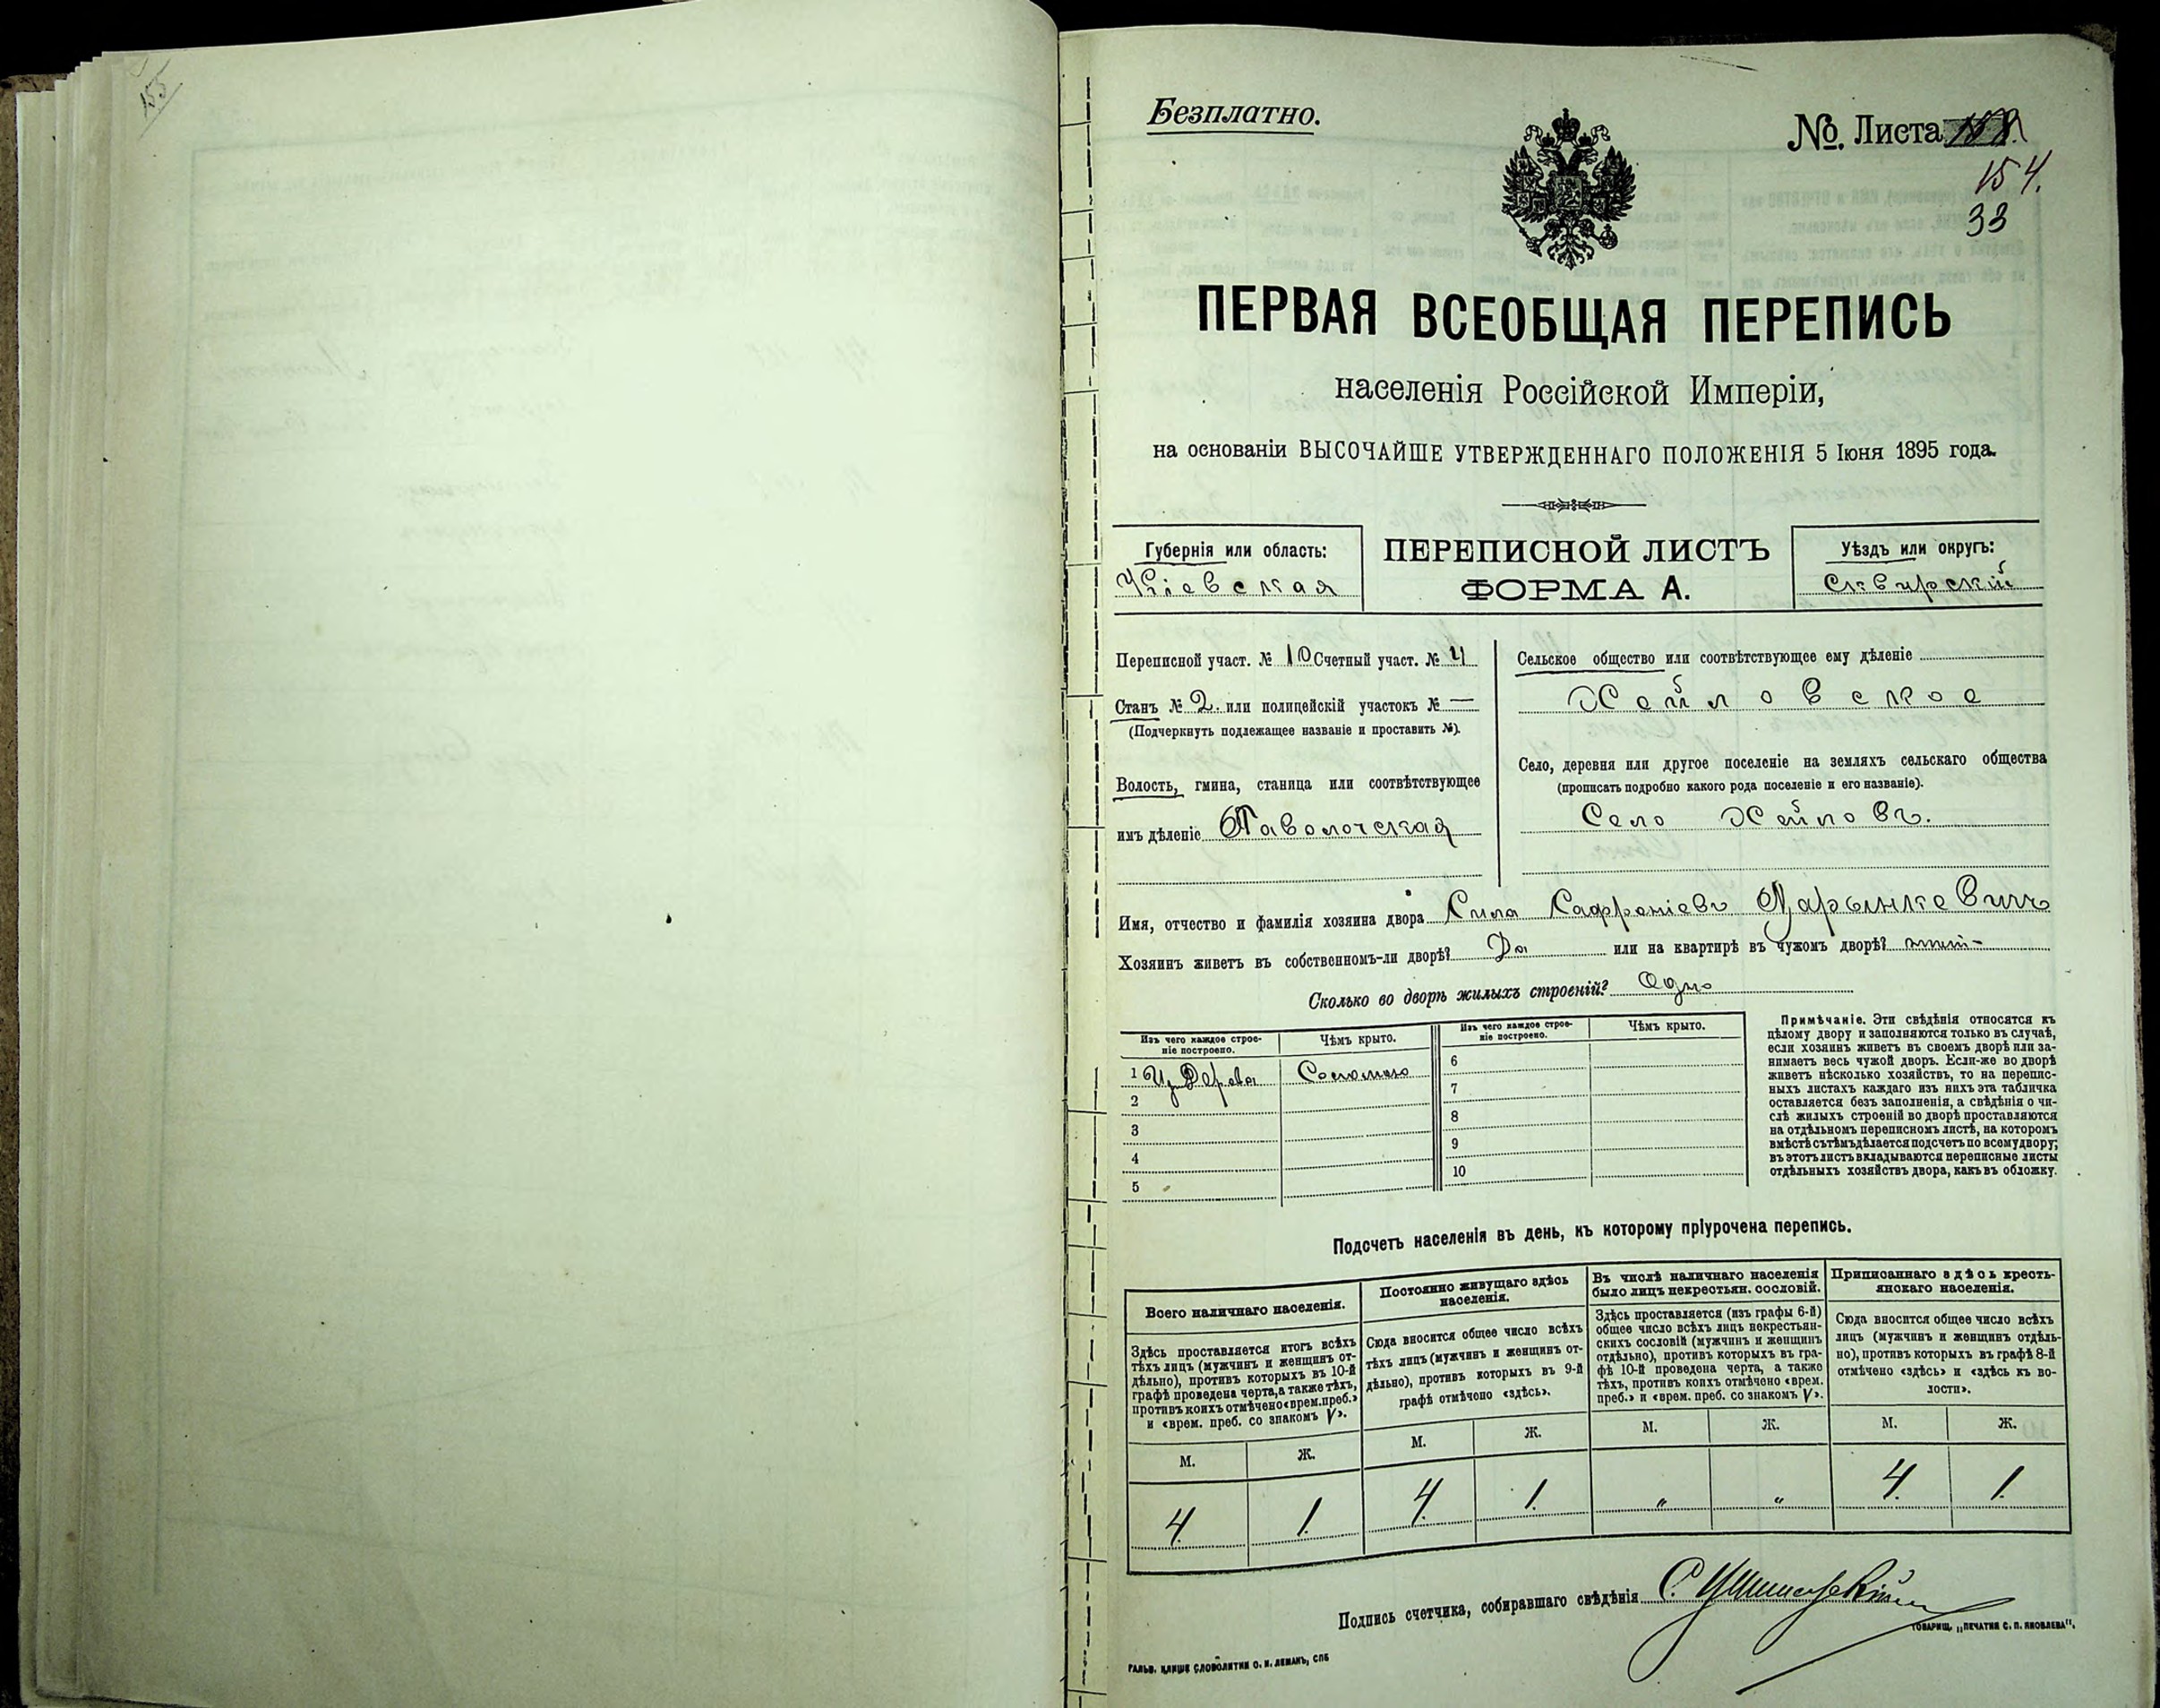 155
Безплатно.
№. Листа
154.
33
ПЕРВАЯ ВСЕОБЩАЯ ПЕРЕПИСЬ
населенія Россійской Имперіи,
на основаніи ВЫСОЧАЙШЕ УТВЕРЖДЕННАГО ПОЛОЖЕНІЯ 5 Іюня 1895 года.
Губернія или область:
Кіевская
ПЕРЕПИСНОЙ ЛИСТЪ
ФОРМА А.
Уѣздъ или округъ:
Сквирскій
Переписной участ. № 10 Счетный участ. № 4
Станъ № 2. или полицейскій участокъ № —
(Подчеркнуть подлежащее названіе и проставить №).
Волость, гмина, станица или соотвѣтствующее
имъ дѣленіе Паволочская
Сельское общество или соотвѣтствующее ему дѣленіе
Хейловское
Село, деревня или другое поселеніе на земляхъ сельскаго общества
(прописать подробно какого рода поселеніе и его названіе).
Село Хейловъ.
Имя, отчество и фамилія хозяина двора Сила Сафроніевъ Марцинкевичъ
Хозяинъ живетъ въ собственномъ-ли дворѣ? Да или на квартирѣ въ чужомъ дворѣ?
Сколько во дворѣ жилыхъ строеній? Одно
Изъ чего каждое строе-
ніе построено.
Чѣмъ крыто.
Изъ чего каждое строе-
ніе построено.
Чѣмъ крыто.
1 Изъ Дерева Соломою
2
3
4
5
6
7
8
9
10
Примѣчаніе. Эти свѣдѣнія относятся къ
цѣлому двору и заполняются только въ случаѣ,
если хозяинъ живетъ въ своемъ дворѣ или за-
нимаетъ весь чужой дворъ. Если-же во дворѣ
живетъ нѣсколько хозяйствъ, то на перепис-
ныхъ листахъ каждаго изъ нихъ эта табличка
оставляется безъ заполненія, а свѣдѣнія о чи-
слѣ жилыхъ строеній во дворѣ проставляются
на отдѣльномъ переписномъ листѣ, на которомъ
вмѣстѣ съ тѣмъ дѣлается подсчетъ по всему двору;
въ этотъ листъ вкладываются переписные листы
отдѣльныхъ хозяйствъ двора, какъ въ обложку.
Подсчетъ населенія въ день, къ которому пріурочена перепись.
Всего наличнаго населенія.
Здѣсь проставляется итогъ всѣхъ
тѣхъ лицъ (мужчинъ и женщинъ от-
дѣльно), противъ которыхъ въ 10-й
графѣ проведена черта, а также тѣхъ,
противъ коихъ отмѣчено «врем. преб.»
и «врем. преб. со знакомъ V».
Постоянно живущаго здѣсь
населенія.
Сюда вносится общее число всѣхъ
тѣхъ лицъ (мужчинъ и женщинъ от-
дѣльно), противъ которыхъ въ 9-й
графѣ отмѣчено «здѣсь».
Въ числѣ наличнаго населенія
было лицъ некрестьян. сословій.
Здѣсь проставляется (изъ графы 6-й)
общее число всѣхъ лицъ некрестьян-
скихъ сословій (мужчинъ и женщинъ
отдѣльно), противъ которыхъ въ гра-
фѣ 10-й проведена черта, а также
тѣхъ, противъ коихъ отмѣчено «врем.
преб.» и «врем. преб. со знакомъ V».
Приписаннаго здѣсь кресть-
янскаго населенія.
Сюда вносится общее число всѣхъ
лицъ (мужчинъ и женщинъ отдѣль-
но), противъ которыхъ въ графѣ 8-й
отмѣчено «здѣсь» и «здѣсь къ во-
лости».
М. Ж. М. Ж. М. Ж. М. Ж.
4. 1. 4. 1. " " 4. 1.
Подпись счетчика, собиравшаго свѣдѣнія С.
ТОВАРИЩ. „ПЕЧАТНЯ С. П. ЯКОВЛЕВА".
ГАЛЬВ. КЛИШЕ СЛОВОЛИТНИ О. И. ЛЕМАНЪ, СПБ